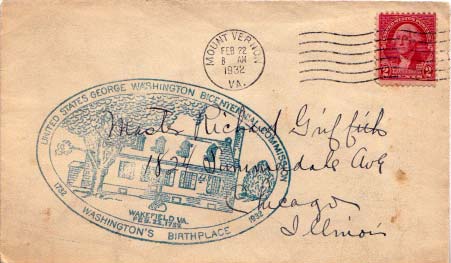 MOUNT VERNON
FEB 22
8 AM
1932
VA.
2 2
UNITED STATES GEORGE WASHINGTON BICENTENNIAL COMMISSION
1732 1932
WAKEFIELD, VA.
FEB. 22, 1732.
WASHINGTON'S BIRTHPLACE
Master Richard Griffith
Ave
Chicago
Illinois